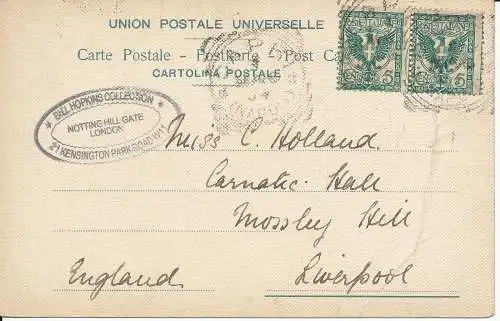 UNION POSTALE UNIVERSELLE
Carte Postale - Postkarte - Post Card
CARTOLINA POSTALE
BILL HOPKINS COLLECTION
NOTTING HILL GATE
LONDON
21 KENSINGTON PARK ROAD W11
Miss C. Holland
Carnatic Hall
Mossley Hill
England Liverpool